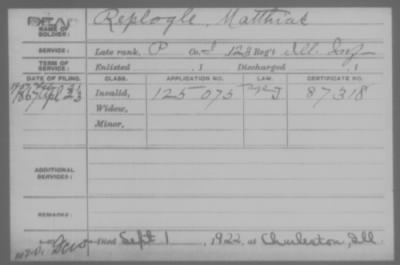 NAME OF SOLDIER: Replogle, Matthias
SERVICE: Late rank, P Co. I 123 Reg't Ill. Inf
TERM OF SERVICE: Enlisted , 1 Discharged , 1
DATE OF FILING. CLASS. APPLICATION NO. LAW. CERTIFICATE NO.
Invalid, 125 075 87318
Widow,
Minor,
ADDITIONAL SERVICES:
REMARKS:
died Sept 1, 1922, at Charleston, Ill.